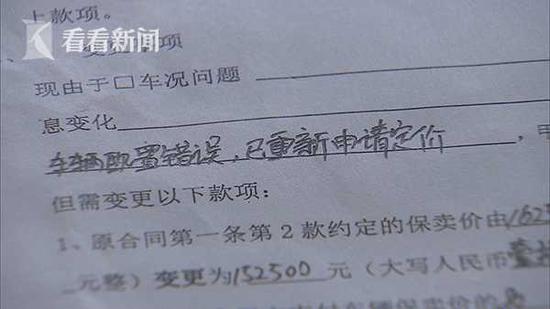 上款项。
看看新闻
变更 项
现由于□车况问题
息变化
车辆配置错误,已重新申请定价
但需变更以下款项:
1、原合同第一条第2款约定的保卖价由162
元整)变更为152500元(大写人民币壹拾